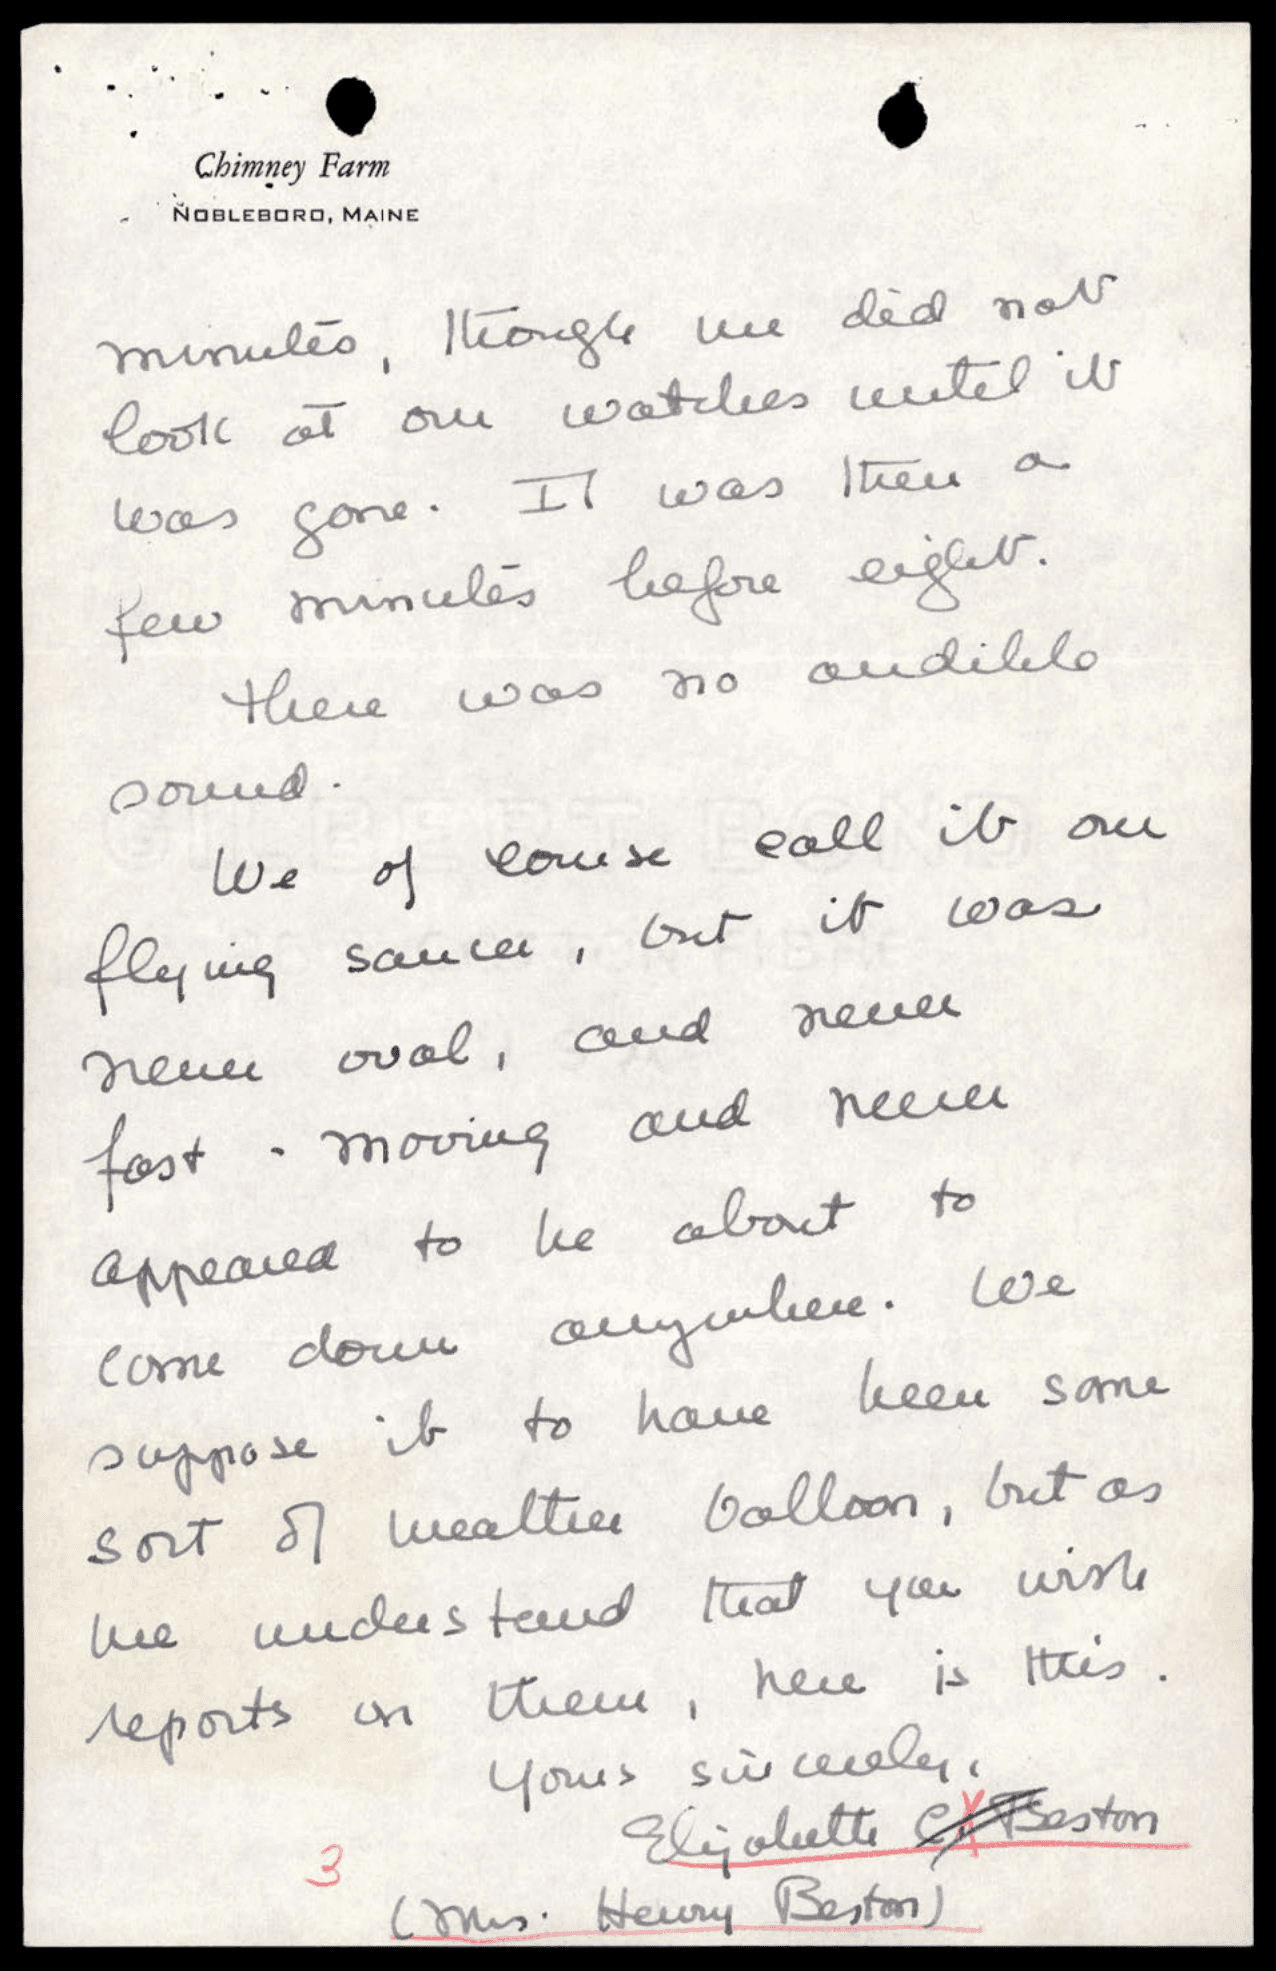 Chimney Farm
NOBLEBORO, MAINE
minutes, though we did not
look at our watches until it
was gone. It was then a
few minutes before eight.
There was no audible
sound.
We of course call it our
flying saucer, but it was
never oval, and never
fast-moving and never
appeared to be about to
come down anywhere. We
suppose it to have been some
sort of weather balloon, but as
we understand that you wish
reports on them, here is this.
Yours sincerely,
Elizabeth C. Beston
3
(Mrs. Henry Beston)